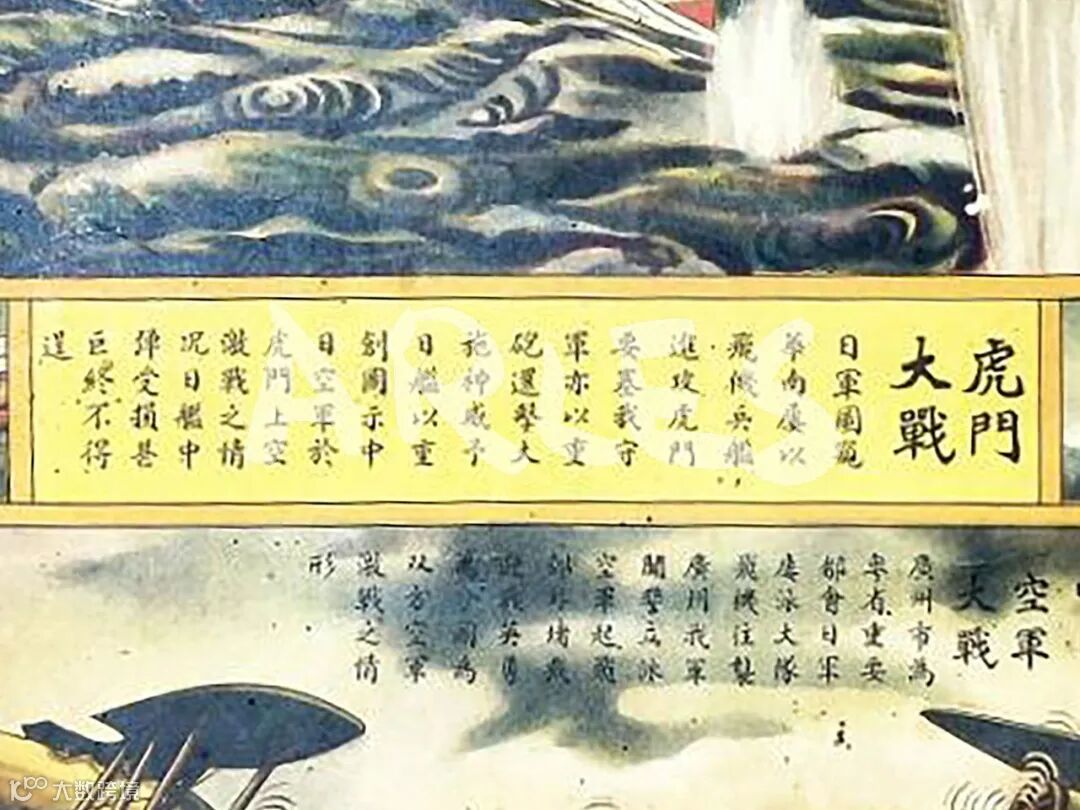 虎門
大戰
日軍圖冦
華南屢以
飛機兵艦
進攻虎門
要塞我守
軍亦以重
砲還擊大
施神威予
日艦以重
創圖示中
日空軍於
虎門上空
激戰之情
況日艦中
彈受損甚
巨終不得
逞
空軍
大戰
廣州市為
粤省重要
都會日軍
屡派大隊
飛機往襲
廣州我軍
聞警立派
空軍起
堵
迎戰英勇
圖為
双方空軍
激戰之情
形
ARLES
大数跨境